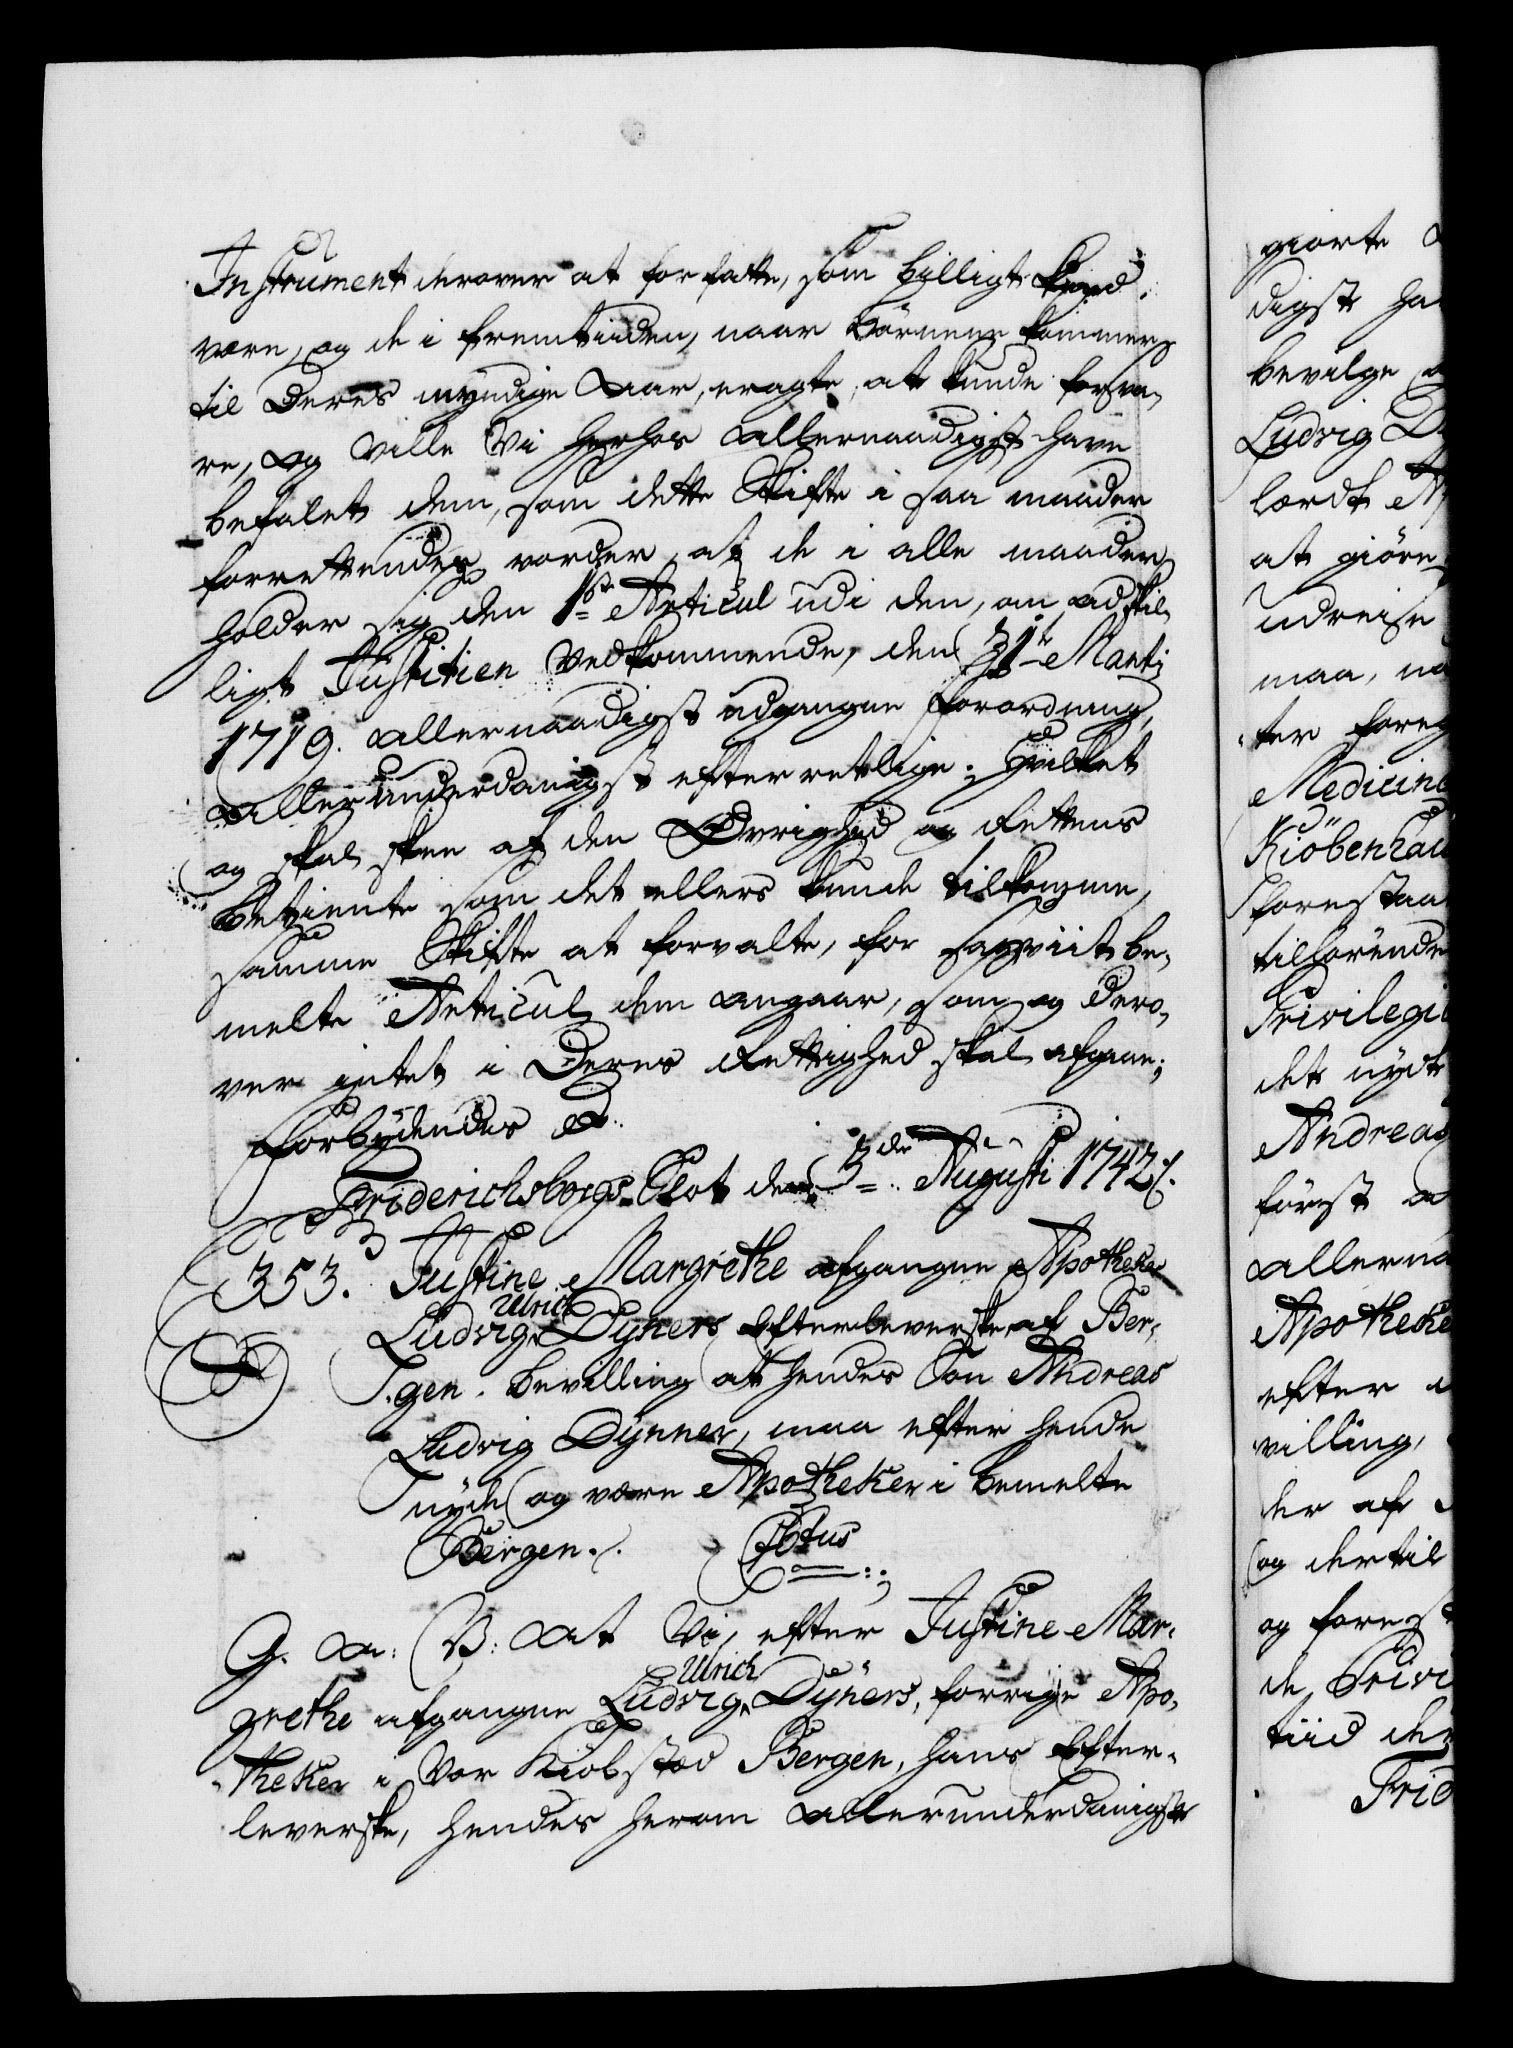 Instrument derover at forfatte, som billigt kand
være, og de i fremtiiden, naar Börnene kommer
til Deres myndige Aar, eragte, at kunde forsva,
re, Og Ville Vi herhos Allernaadigst have
befalet dem, som dette Skifte i saa maader
forrettendes vorder, at de i alle maader
holder sig den 1ste Articul udi den, om adskil,
ligt Justitien Vedkommende, den 31te Marti
1719. Allernaadigst udgangne Forordning,
Allerunderdanigst efterretlige; Hvilket
og skal skee af den Øvrighed og Rettens
Betiente som det ellers kunde tilkomme,
samme Skifte at forvalte, for saaviit be,
melte Articul dem angaar, som og dero,
ver intet i Deres Rettighed skal afgaae;
Forbydendes &.
Friderichsborgs Slot den 3de Augusti 1742 ⁒.
353. Justine Margrethe afgangne Apotheker
Ludvig Ulrich Dyners Efterleverske af Ber,
gen. Bevilling at hendes Søn Andreas
Ludvig Dynner, maa efter hende
nyde og være Apotheker i bemelte
Bergen ⁒. Cbtus
G. A: V: At Vi, efter Justine Mar,
grethe afgangne Ludvig Ulrich Dÿners, forrige Apo,
theker i Vor Kiøbstæd Bergen, hans Efter,
leverske, hendes herom Allerunderdanigst
giorte
digst ha
bevilge
Ludvig D
lærdt
at giöre
udreise
maa, na
ter foreg
Medicin
Kiöbenhav
forestaa
tilhörende
Privilegi
det nyde
Andreas
först
allerna
Apotheke
efter
villing,
der af
og dertil
og fores
de Privi
tiid der
Frid